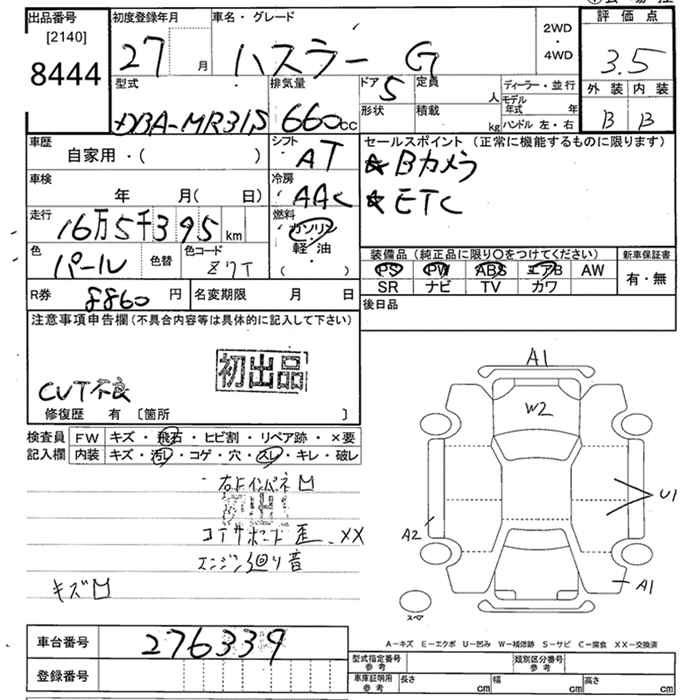 出品番号 初度登録年月 車名・グレード 評価点
[2140]
8444
27 月 ハスラー G 2WD・4WD 3.5
外装 内装
B B
型式 排気量 ドア 定員 ディーラー・並行
DBA-MR31S 660cc 5 人 モデル年式 年
形状 積載 kg ハンドル 左・右
車歴 シフト セールスポイント (正常に機能するものに限ります)
自家用・( ) AT ★Bカメラ
車検 冷房
年 月( 日) AAC ★ETC
走行 燃料
16万5千395km ガソリン
軽・油
( )
色 色替 色コード 装備品 (純正品に限り〇をつけてください) 新車保証書
パール Z7T PS PW ABS エアB AW 有・無
SR ナビ TV カワ
R券 8860 円 名変期限 月 日 後日品
注意事項申告欄 (不具合内容等は具体的に記入して下さい)
初出品
CVT不良
修復歴 有 〔箇所 〕
検査員 FW キズ・飛石・ヒビ割・リペア跡・×要
記入欄 内装 キズ・汚レ・コゲ・穴・スレ・キレ・破レ
初出
エンジン廻り音
キズ
A1
W2
U1
A2
A1
スペア
A-キズ E-エクボ U-凹み W-補修跡 S-サビ C-腐食 XX-交換済
車台番号 276339
登録番号
型式指定番号 参考 類別区分番号 参考
車庫証明用 参考 長さ cm 幅 cm 高さ cm